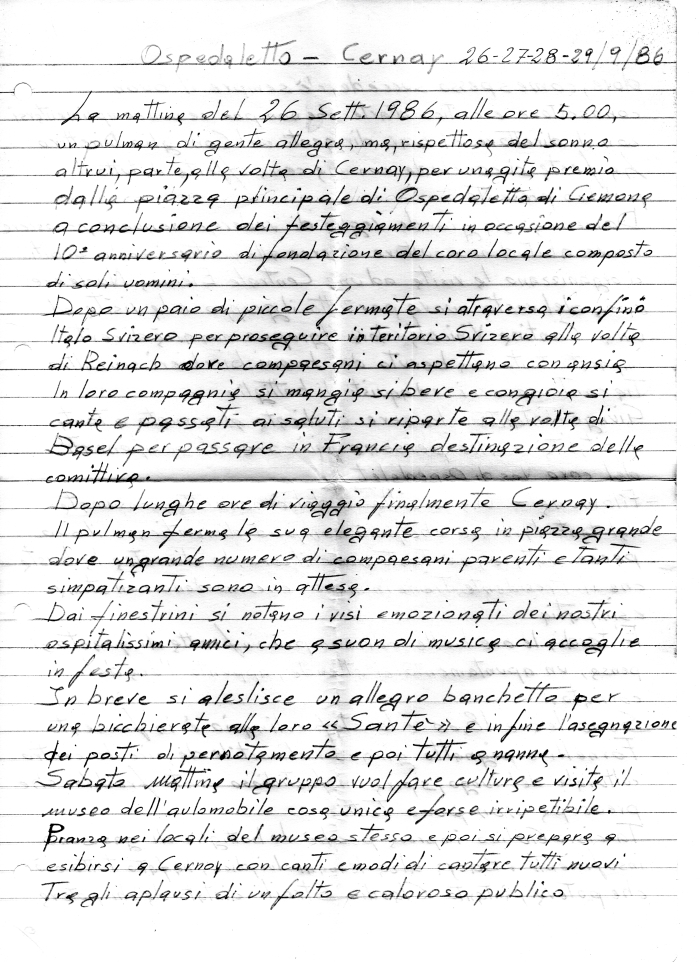 Ospedaletto - Cernay 26-27-28-29/9/86
La mattina del 26 Sett. 1986, alle ore 5.00,
un pulman di gente allegra, ma, rispettosa del sonno
altrui, parte, alla volta di Cernay, per una gita premio
dalla piazza principale di Ospedaletto di Gemona
a conclusione dei festeggiamenti in occasione del
10° anniversario di fondazione del coro locale composto
di soli uomini.
Dopo un paio di piccole fermate si atraversa i confino
Italo Svizero per proseguire in teritorio Svizero alla volta
di Reinach dove compaesani ci aspettano con ansia
In loro compagnia si mangia si beve e con gioia si
canta e passati ai saluti si riparte alla volta di
Basel per passare in Francia destinazione della
comittiva.
Dopo lunghe ore di viaggio finalmente Cernay.
Il pulman ferma la sua elegante corsa in piazza grande
dove un grande numero di compaesani parenti e tanti
simpatizanti sono in attesa.
Dai finestrini si notano i visi emozionati dei nostri
ospitalissimi amici, che a suon di musica ci accoglie
in festa.
In breve si aleslisce un allegro banchetto per
una bicchierata alla loro «Santé» e infine l'asegnazione
dei posti di pernotamento e poi tutti a nanna.
Sabato mattina il gruppo vuol fare cultura e visita il
museo dell'automobile cosa unica e forse irripetibile.
Pranza nei locali del museo stesso e poi si prepara a
esibirsi a Cernay con canti e modi di cantare tutti nuovi
Tra gli aplausi di un folto e caloroso publico